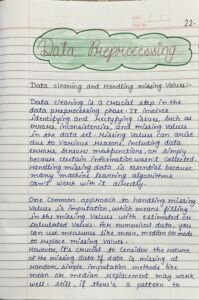 22.
Data Preprocessing
Data cleaning and Handling missing Values:-
Data cleaning is a crucial step in the
data preprocessing phase. It involves
identifying and rectifying issues, such as
errors, inconsistencies, and missing values
in the data set. Missing Values can arise
due to various reasons, including data
errors, sensors malfunctions, or simply
because certain information wasn't collected.
Handling missing data is essential because
many machine learning algorithms
can't work with it directly.
One Common approach to handling missing
values is imputation, which means filling
in the missing values with estimated or
calculated values. For numerical data, you
can use measures like mean, median or mode
to replace missing values.
However, it's crucial to consider the nature
of the missing data. If data is missing at
random, simple imputation methods like
mean or median replacement may work
well. Still, if there's a pattern to